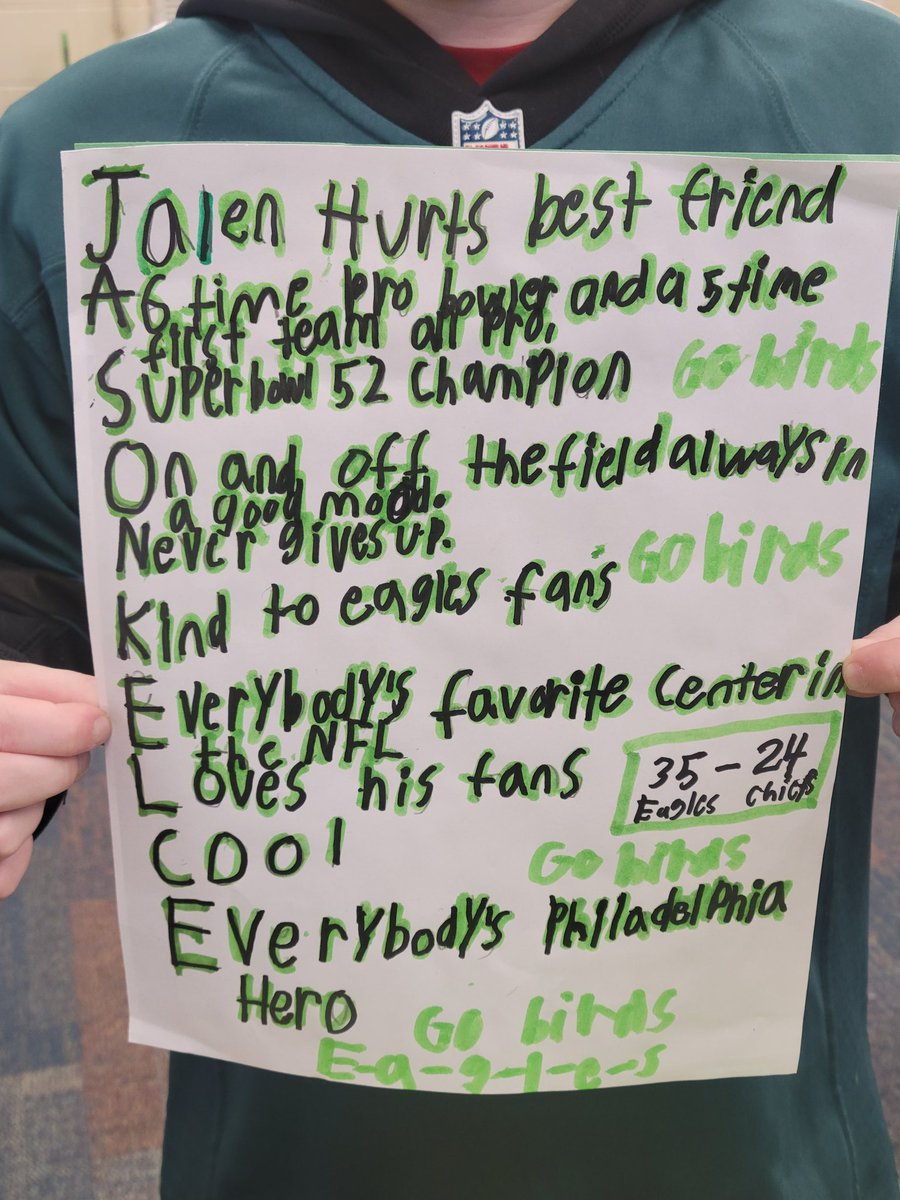 Jalen Hurts best friend
A 6 time pro bowler and a 5 time
first team all pro.
Superbowl 52 Champion Go birds
On and off the field always in
a good mood.
Never gives up.
Kind to eagles fans Go birds
Everybody's favorite Center in
the NFL
Loves his fans
35-24
Eagles Chiefs
Cool
Go birds
Everybody's Philadelphia
Hero
Go birds
E-a-g-l-e-s